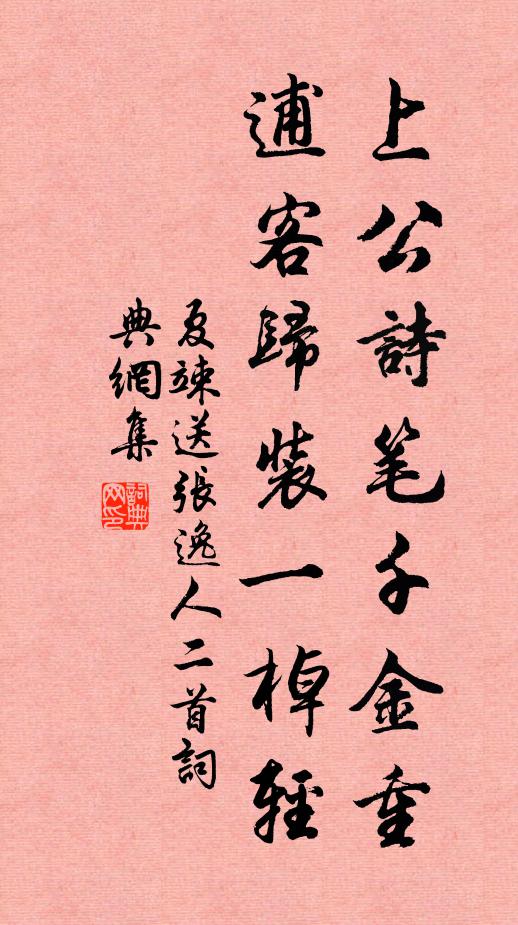 上公詩笔千金重
逋客歸装一棹輕
夏竦送張逸人二首詞
典網集
詞典
网印